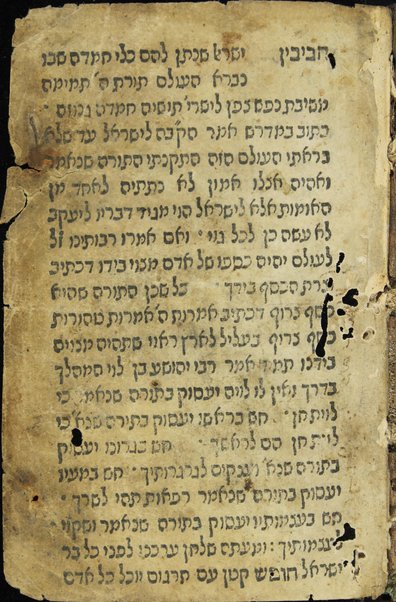 חביבין ישראל שניתן להם כלי חמדה שבו
נברא העולם תורת ה' תמימה
משיבת נפש צפן לישרי' תושיה חמדה גנוזה
כתוב במדרש אמר הק'בה לישראל עד שלא
בראתי העולם הזה התקנתי התורה שנאמר
ואהיה אצלו אמון לא נתתיה לאחד מן
האומות אלא לישראל הוי מגיד דבריו ליעקב
לא עשה כן לכל גוי ואם אמרו רבותינו זל
לעולם יהיה כספו של אדם מצוי בידו דכתיב
וצרת הכסף בידך כל שכן התורה שהיא
כסף צרוף דכתיב אמרות ה' אמרות טהורות
כסף צרוף בעליל לארץ ראוי שתהיה מצויה
בידנו תמיד אמר רבי יהושע בן לוי המהלך
בדרך ואין לו לויה יעסוק בתורה שנאמ' כי
לוית חן חש בראשו יעסוק בתורה שנא' כי
לוית חן הם לראשך חש בגרונו יעסוק
בתורה שנא' וענקים לגרגרותיך חש במעיו
יעסוק בתורה שנאמר רפאות תהי לשרך
חש בעצמותיו יעסוק בתורה שנאמר ושקוי
לעצמותיך ומעתה שלחן ערכנו לפני כל בר
ישראל חומש קטן עם תרגום יוכל כל אדם